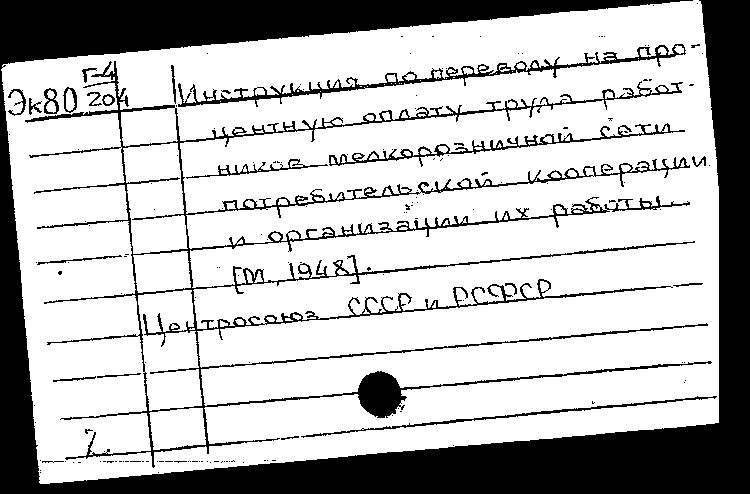 Эк80 Г-4/204
Инструкция по переводу на про-
центную оплату труда работ-
ников мелкорозничной сети
потребительской кооперации
и организации их работы.
[М., 1948].
Центросоюз СССР и РСФСР